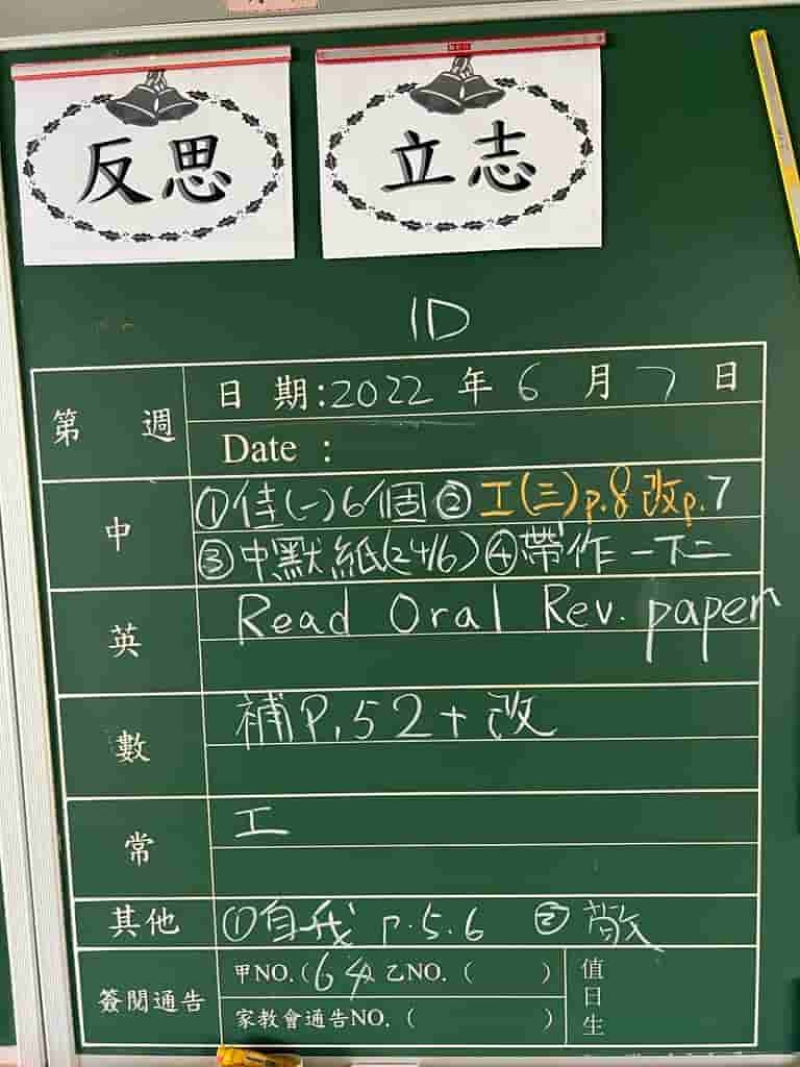 反思
立志
1D
第 週
日 期:2022 年 6 月 7 日
Date :
中
①佳(一)6個②工(三)p.8改p.7
③中默紙(24/6)④帶作一下二
英
Read Oral Rev. paper
數
補P.52+改
常
工
其他
①自我 p.5.6 ②
簽閱通告
甲NO.(64) 乙NO.( )
家教會通告NO.( )
值日生